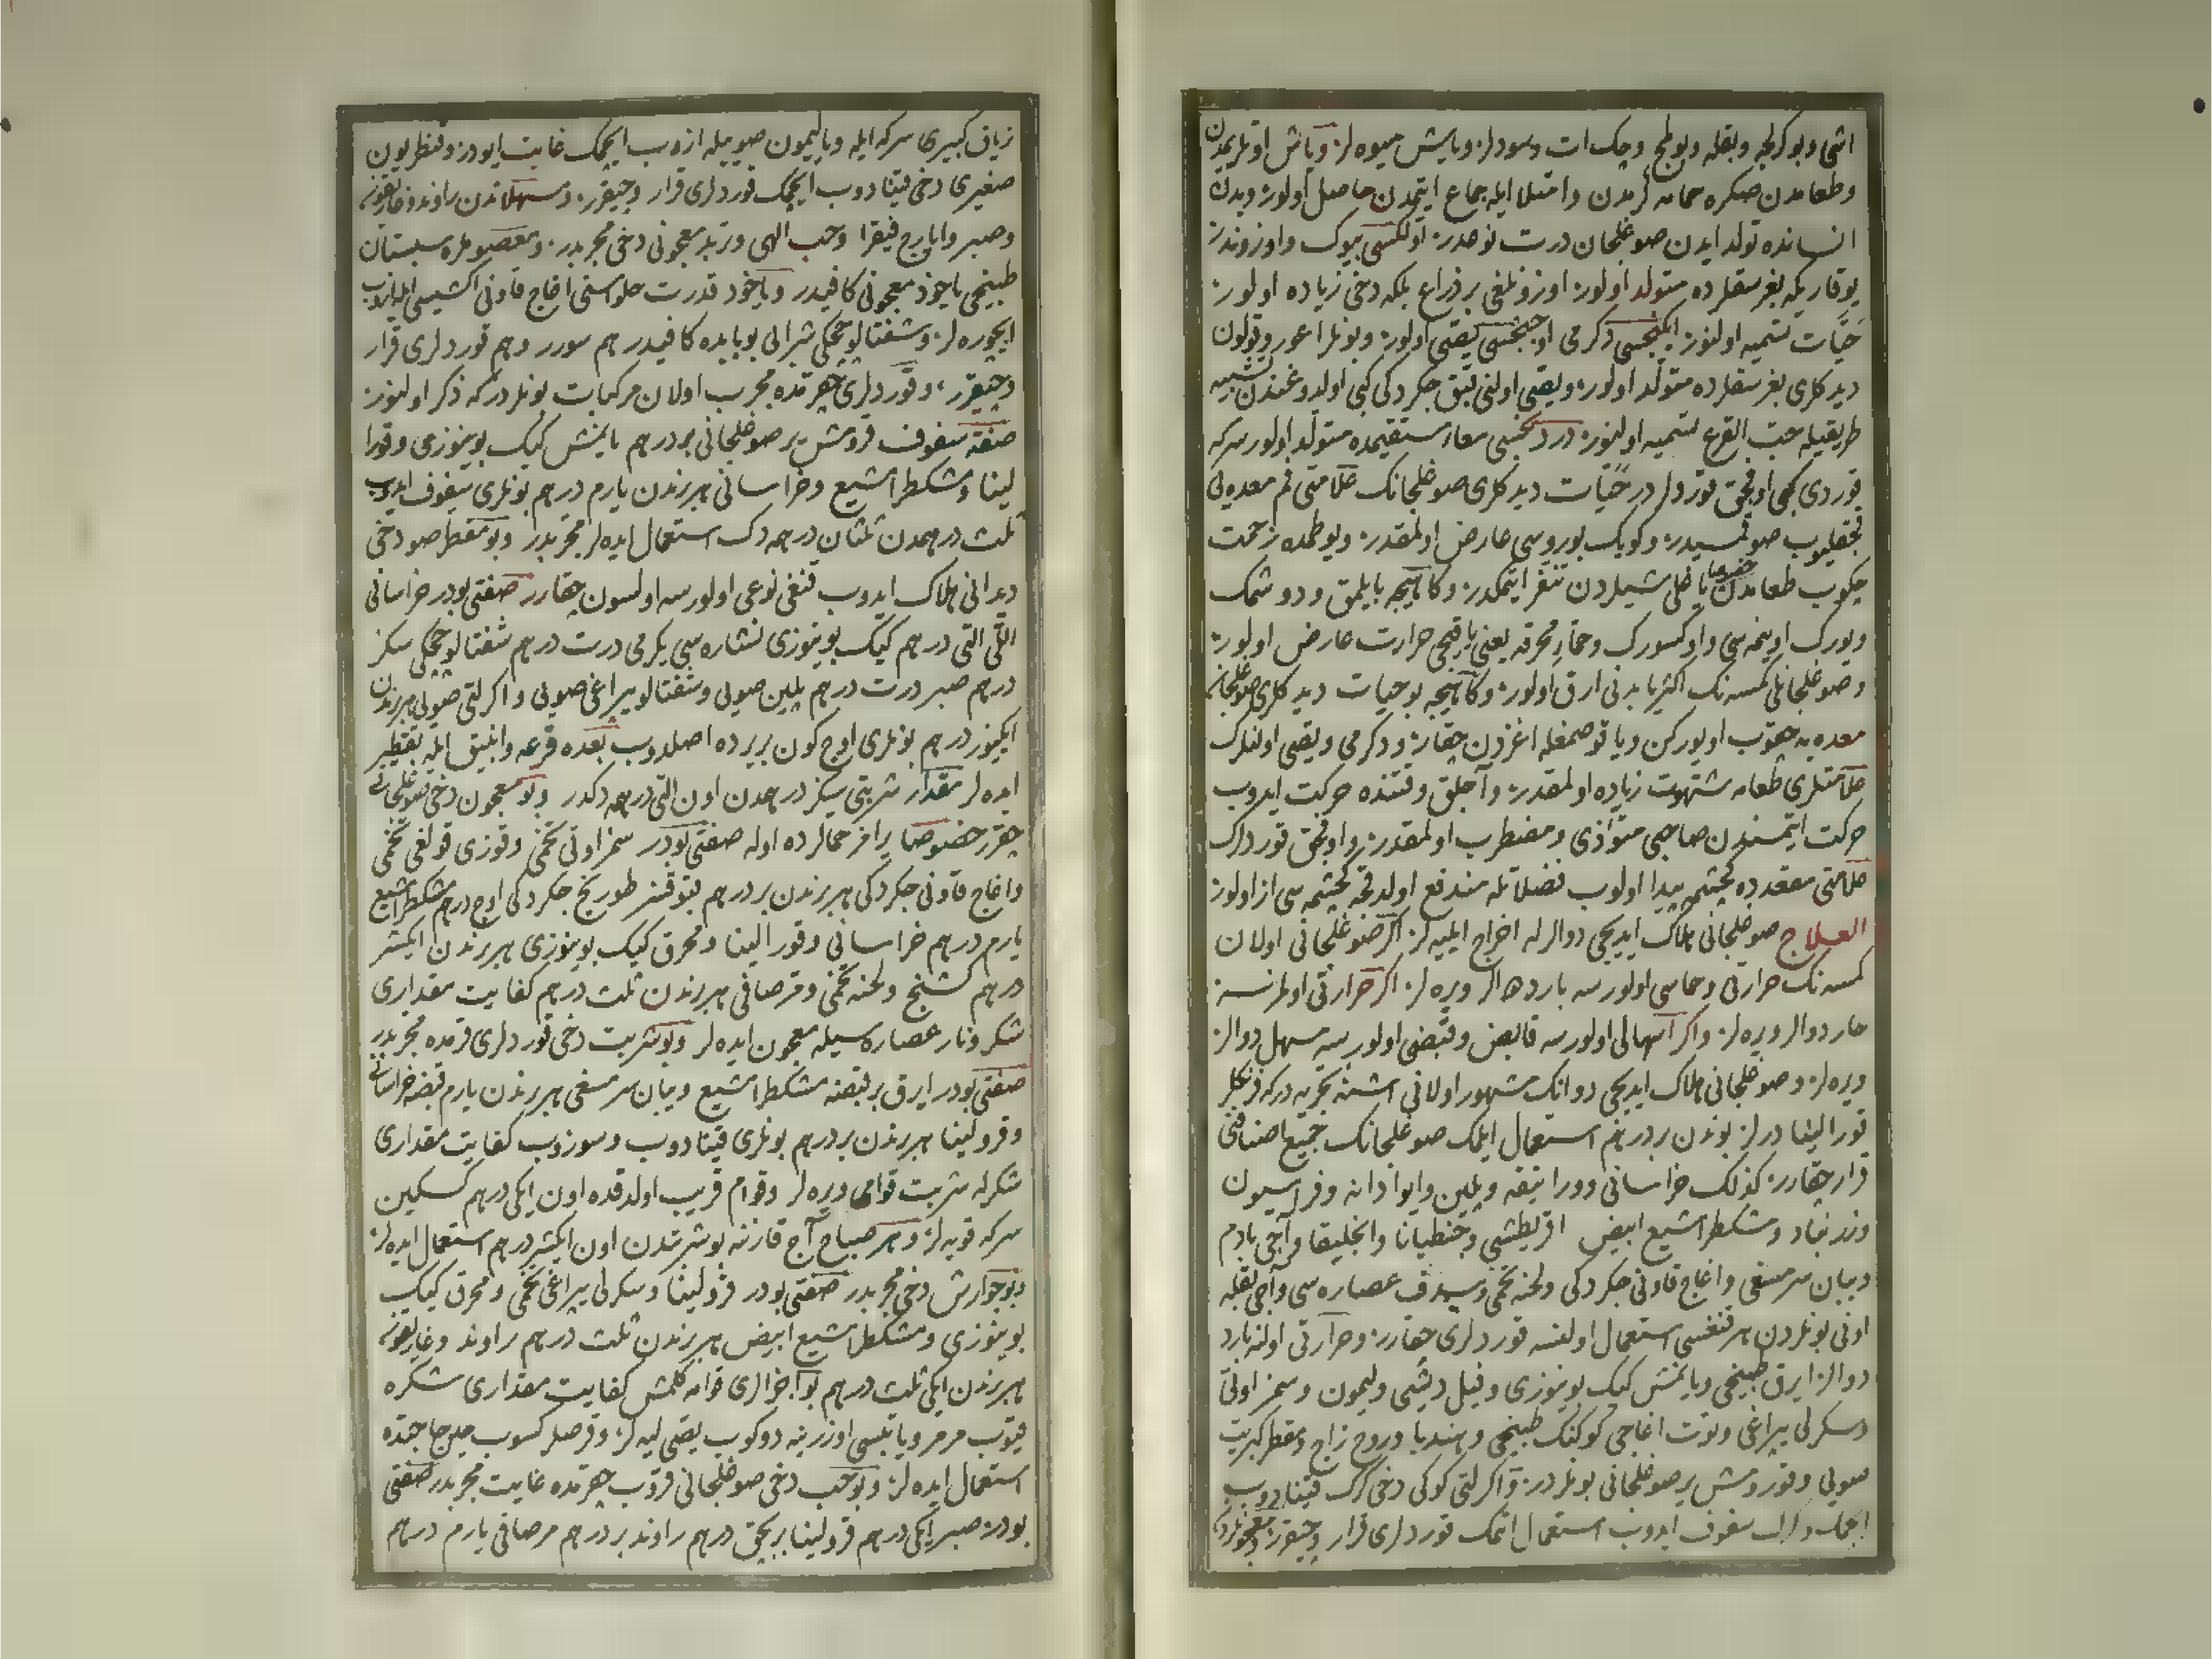 اشی وبوكرلجه وبقله وبولج وچك ات وسودلر وياش ميوه لر وياش اوتلر يمدن
وطعامدن صكره حمامه كرمدن وامتلا ايله جماع ايتمدن حاصل اولور وبدن
انسانده تولد ايدن صوغلجان درت نوعدر اولكسی بيوك واوزوندر
يوقاريكه بغرسقلرده متولد اولور اوزونلغی بر ذراع بلكه دخی زياده اولور
حيّات تسميه اولنور ايكنجسی دكرمی اوچنجسی يصّی اولور وبونلر اعور وقولون
ديدكلری بغرسقلرده متولد اولور ويصّی اولنی قبق جكردكی كبی اولدوغندن تشبيه
طريقيله حبّ القرع تسميه اولنور دردنجسی معاء مستقيمده متولد اولور سركه
قوردی كبی اوفجق قوردلردر حيّات ديدكلری صوغلجانك علامتی فم معده يی
صولمسيدر وكوپك يوروسی عارض اولمقدر ويوطمده زحمت
چكوب طعامدن خصوصا ياغلی شيلردن تنفر ايتمكدر وكاهيجه بايلمق ودوشمك
ويورك اوينمه سی واوكسورك وحمّاء محرقه يعنی ياقيجی حرارت عارض اولور
وصوغلجانلی كمسه نك اكثريا بدنی ارق اولور وكاهيجه بو حيات ديدكلری صوغلجان
معده يه چقوب اويورکن ويا قوصمغله اغزدن چقار ودكرمی ويصّی اولنلرك
علامتلری طعامه شهوت زياده اولمقدر وآجلق وقتنده حركت ايدوب
حركت ايتمسندن صاحبی متوأذی ومضطرب اولمقدر واوفجق قوردلرك
علامتی مقعدده كجشمه پيدا اولوب فضلاتله مندفع اولدقجه كجشمه سی از اولور
العلاج صوغلجانی هلاك ايديجی دوالرله اخراج ايليه لر اكر صوغلجانی اولان
كمسه نك حرارتی وحماسی اولورسه بارد دوالر ويره لر اكر حرارتی اولمزسه
حار دوالر ويره لر واكر اسهالی اولورسه قابض وقبضی اولورسه مسهل دوالر
ويره لر وصوغلجانی هلاك ايديجی دوانك مشهور اولانی اشنه تجربه دركه فرنكلر
قورالينا درلر بوندن بر درهم استعمال ايلمك صوغلجانك جميع اصنافنی
قرار چقارر كذلك خراسانی وبلين وايوادانه وفراسيون
وزرنباد ومشكطرامشيع ابيض اقريطشی وجنطيانا وانجليقا وآجی بادم
ويبان سرمسغی واغاج قاونی جكردكی ولحنه تخمی وسدف عصاره سی وآجی بقله
اونی بونلردن هرقنغسی استعمال اولنسه قوردلری چقارر وحرارتی اولنه بارد
دوالر ايرق طبيخی ويانمش كيك بوينوزی وفيل ديشی وليمون وسمز اوتی
وسكرلی يپراغی وتوت اغاجی كوكنك طبيخی وهنديا وروح زاج ومقطر كبريت
صويی وقورومش ير صوغلجانی بونلردر واكرلتی كوكی دخی كرك قيناردوب
ايچمك وكرك سفوف ايدوب استعمال اتمك قوردلری قرار وچيقرر
ترياق كبيری سركه ايله ويا ليمون صوييله ازوب ايچمك غايت ايودر وقنطريون
صغيری دخی قينادوب ايچمك قوردلری قرار وچيقرر ومسهلاتدن راوند وغاريقون
وصبر وايارج فيقرا وحب الهی وتربد معجونی دخی مجربدر ومعصوملره سبستان
طبيخی ياخود معجونی كافيدر وياخود قدرت حلواسنی اغاج قاونی اكشيسی ايله ازوب
ايچوره لر وشفتالو چچكی شرابی بوبابده كافيدر هم سورر وهم قوردلری قرار
وچيقرر وقوردلری چقرتمده مجرب اولان مركبات بونلردركه ذكر اولنور
صفة سفوف قورومش ير صوغلجانی بر درهم يانمش كيك بوينوزی وقورا
لينا ومشكطرامشيع وخراسانی هربرندن يارم درهم بونلری سفوف ايدوب
ثلث درهمدن ثلثان درهمه دك استعمال ايده لر مجربدر وبو مقطر صو دخی
ديدانی هلاك ايدوب قنغی نوعی اولورسه اولسون چقارر صفتی بودر خراسانی
اللی التی درهم كيك بوينوزی نشاره سی يكرمی درت درهم شفتالو چچكی سكز
درهم صبر درت درهم بلين صويی وشفتالو يپراغی صويی واكرلتی صويی هربرندن
ايكيوز درهم بونلری اوچ كون بريرده اصلدوب بعده قرعه وانبيق ايله تقطير
ايده لر مقدار شربتی سكز درهمدن اون التی درهمه دكدر وبو معجون دخی صوغلجانی
چقرر خصوصا يرامز حماليرده اوله صفتی بودر سمز اوتی تخمی وقوزی قولغی تخمی
واغاج قاونی جكردكی هربرندن بر درهم طورنج جكردكی اوچ درهم مشكطرامشيع
يارم درهم خراسانی وقورالينا ومحرق كيك بوينوزی هربرندن ايكيشر
درهم كشنج ولحنه تخمی ومرصافی هربرندن ثلث درهم كفايت مقداری
شكر ونار عصاره سيله معجون ايده لر وبو شربت دخی قوردلری قرمده مجربدر
صفتی بودر ايرق بر قبضه مشكطرامشيع ويبان سرمسغی هربرندن يارم قبضه خراسانی
وقرولينا هربرندن بر درهم بونلری قينادوب وسوزوب كفايت مقداری
شكرله شربت قوامی ويره لر وقوام قريب اولدقده اون ايكی درهم كسكين
سركه قويه لر وهر صباح آج قارننه بو شربتدن اون ايكيشر درهم استعمال ايده لر
وبو جوارش دخی مجربدر صفتی بودر قرولينا وسكرلی يپراغی تخمی ومحرق كيك
بوينوزی ومشكطرامشيع ابيض هربرندن ثلث درهم راوند وغاريقون
هربرندن ايكی ثلث درهم بو اجزالری قوامه كلمش كفايت مقداری شكره
قيوب مرمر ويا تپسی اوزرينه دوكوب يصّی ليه لر وقرصلر كسوب حين حاجتده
استعمال ايده لر وبو حب دخی صوغلجانی قروب چقرتمده غايت مجربدر صفتی
بودر صبر ايكی درهم قرولينا بر بچق درهم راوند بر درهم مرصافی يارم درهم